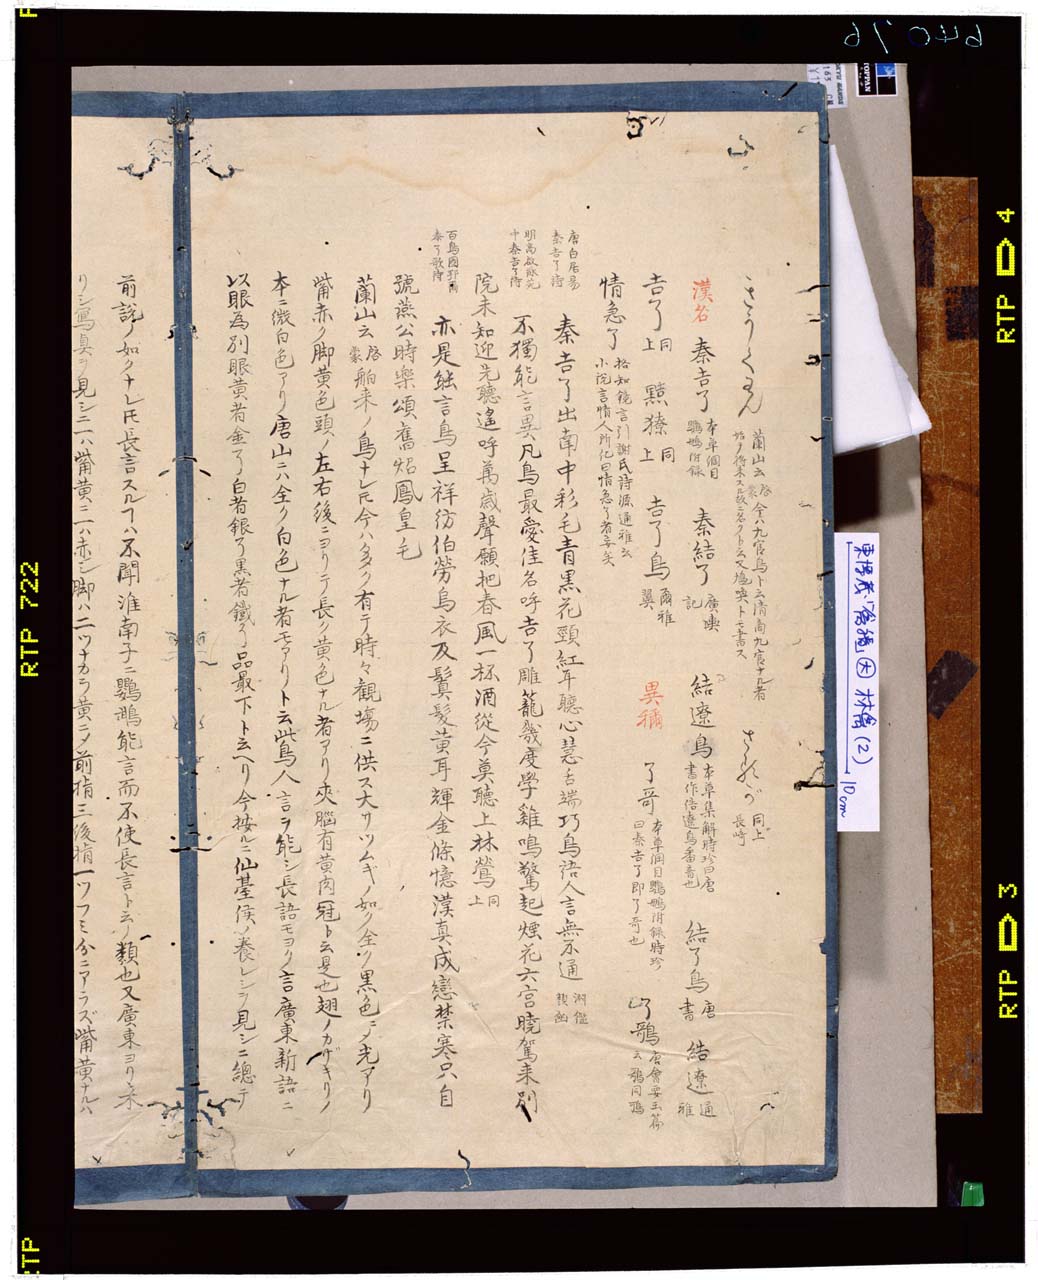 きうくわん 蘭山云 啓蒙 今ハ九官鳥ト云清商九官ナル者
始テ将来スル故ニ名クト云又鳩喚トモ書ス
さるか 同上 長崎
漢名 秦吉了 本草綱目 鸚䳇附録 秦結了 廣輿記 結遼鳥 本草集解時珍曰唐書作結遼鳥番音也 結了鳥 唐書 結遼 通雅
吉了 同上 㸃獠 同上 吉了鳥 爾雅翼 異稱 了哥 本草綱目鸚䳇附録時珍曰秦吉了即了哥也 了鴞 唐會要玉篇云鴞同鴞
情急了 格知鏡言引謝氏詩源通雅云
小説言情人所化曰情急了者妄矣
唐白居易
秦吉了詩 秦吉了出南中彩毛青黑花頸紅耳聰心慧舌端巧鳥語人言無不通 淵鑑類函
明高啟詠苑
中秦吉了詩 不獨能言異凡鳥最愛佳名呼吉了雕籠幾度學雞鳴驚起煙花六宮曉駕来別
院未知迎先聽遙呼萬歳聲願把春風一杯酒從今莫聽上林鶯 同上
秦了歌詩 亦是能言鳥呈祥彷伯勞烏衣及鬒髮黄耳輝金條憶漢真成戀禁寒只自
號燕公時樂頌舊焰鳳皇毛
蘭山云 啓蒙 舶来ノ鳥ナレ𪜈今ハ多ク有テ時々観場ニ供ス大サツムギノ如ク全ク黒色ニ〆光アリ
觜赤ク脚黄色頭ノ左右後ニヨリテ長ク黄色ナル者アリ夾腦有黄肉冠ト云是也翅ノカザキリノ
本ニ微白色アリ唐山ニハ全ク白色ナル者モアリト云此鳥人言ヲ能シ長語モヨク言廣東新語ニ
以眼為別眼黄者金了白者銀了黒者鐵了品最下ト云ヘリ今按ルニ仙臺侯ノ養レシヲ見シニ總テ
前説ノ如クナレ𪜈長言スルヿハ不聞淮南子ニ鸚鵡能言而不使長言ト云ノ類也又廣東ヨリ来
リシ寫真ヲ見シニ一ハ觜黄ニ一ハ赤シ脚ハ二ツナカラ黄ニ〆前指三後指一ツフミ分ニアラズ觜黄ナルハ
東博蔵「禽譜」大 林禽(2)
10cm
64076
RTP 4
RTP 3
RTP 722
RTP
TOPPAN